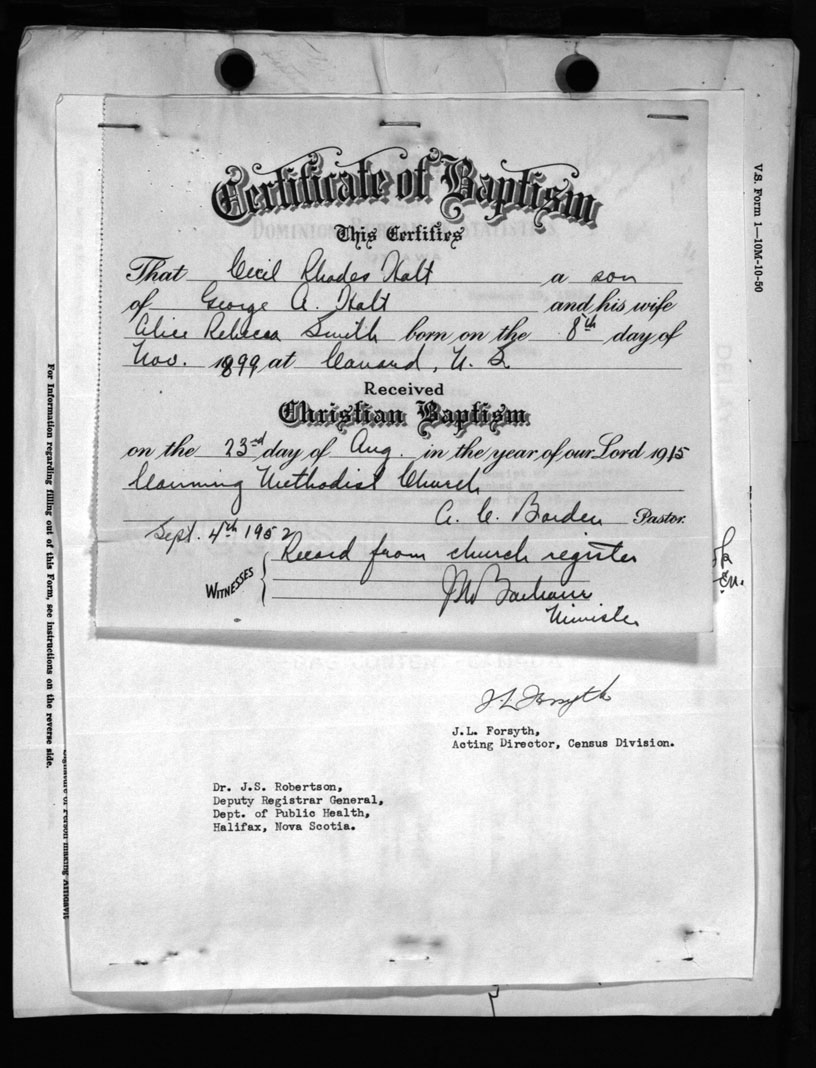 Certificate of Baptism
This Certifies
That Cecil Rhodes Holt a son
of George A. Holt and his wife
Alice Rebecca Smith born on the 8th day of
Nov. 1899 at Canard, N. S
Received
Christian Baptism
on the 23rd day of Aug. in the year of our Lord 1915
Canning Methodist Church
A. C. Borden Pastor.
Sept. 4th 1952
Record from church register
WITNESSES
Minister
J L Forsyth
J.L. Forsyth,
Acting Director, Census Division.
Dr. J.S. Robertson,
Deputy Registrar General,
Dept. of Public Health,
Halifax, Nova Scotia.
V.S. Form 1—10M-10-50
For Information regarding filling out of this Form, see instructions on the reverse side.
Signature of Person making Affidavit